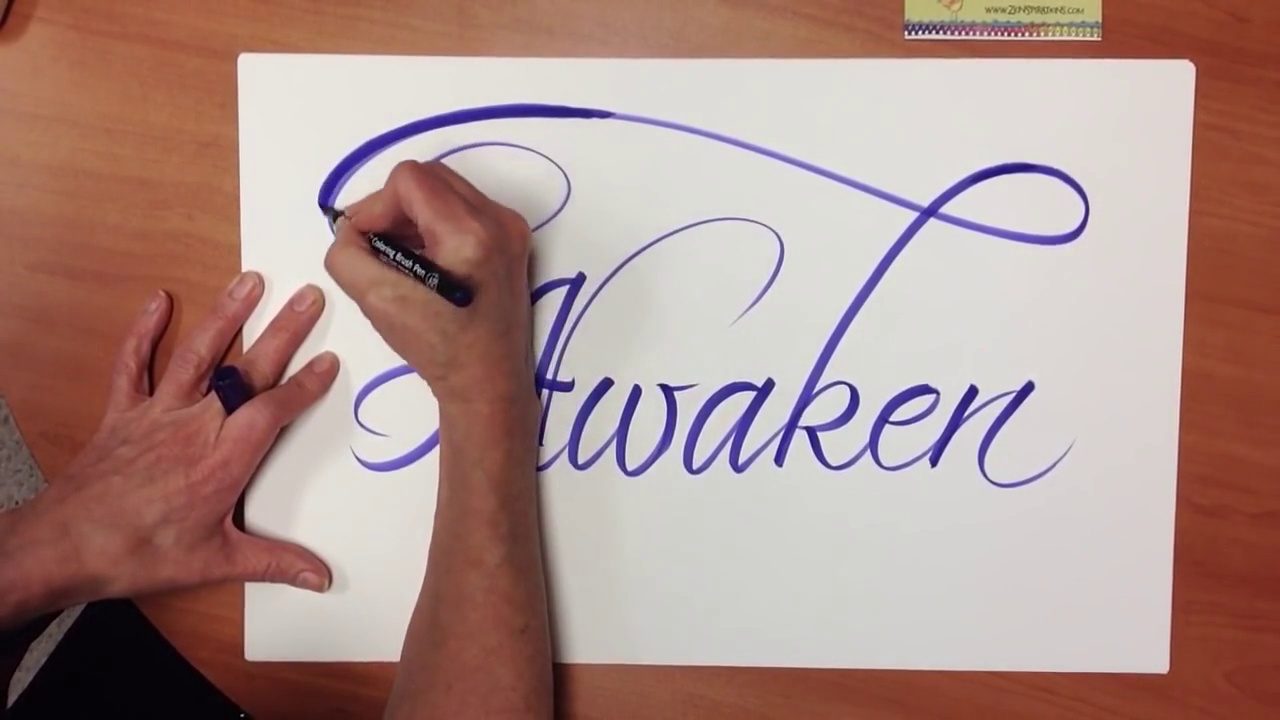 www.Zenspirations.com
Coloring Brush Pen
Awaken